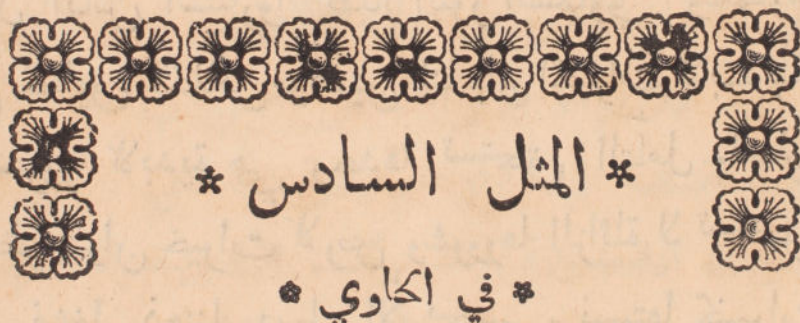 * المثل السادس *
* في الحاوي *